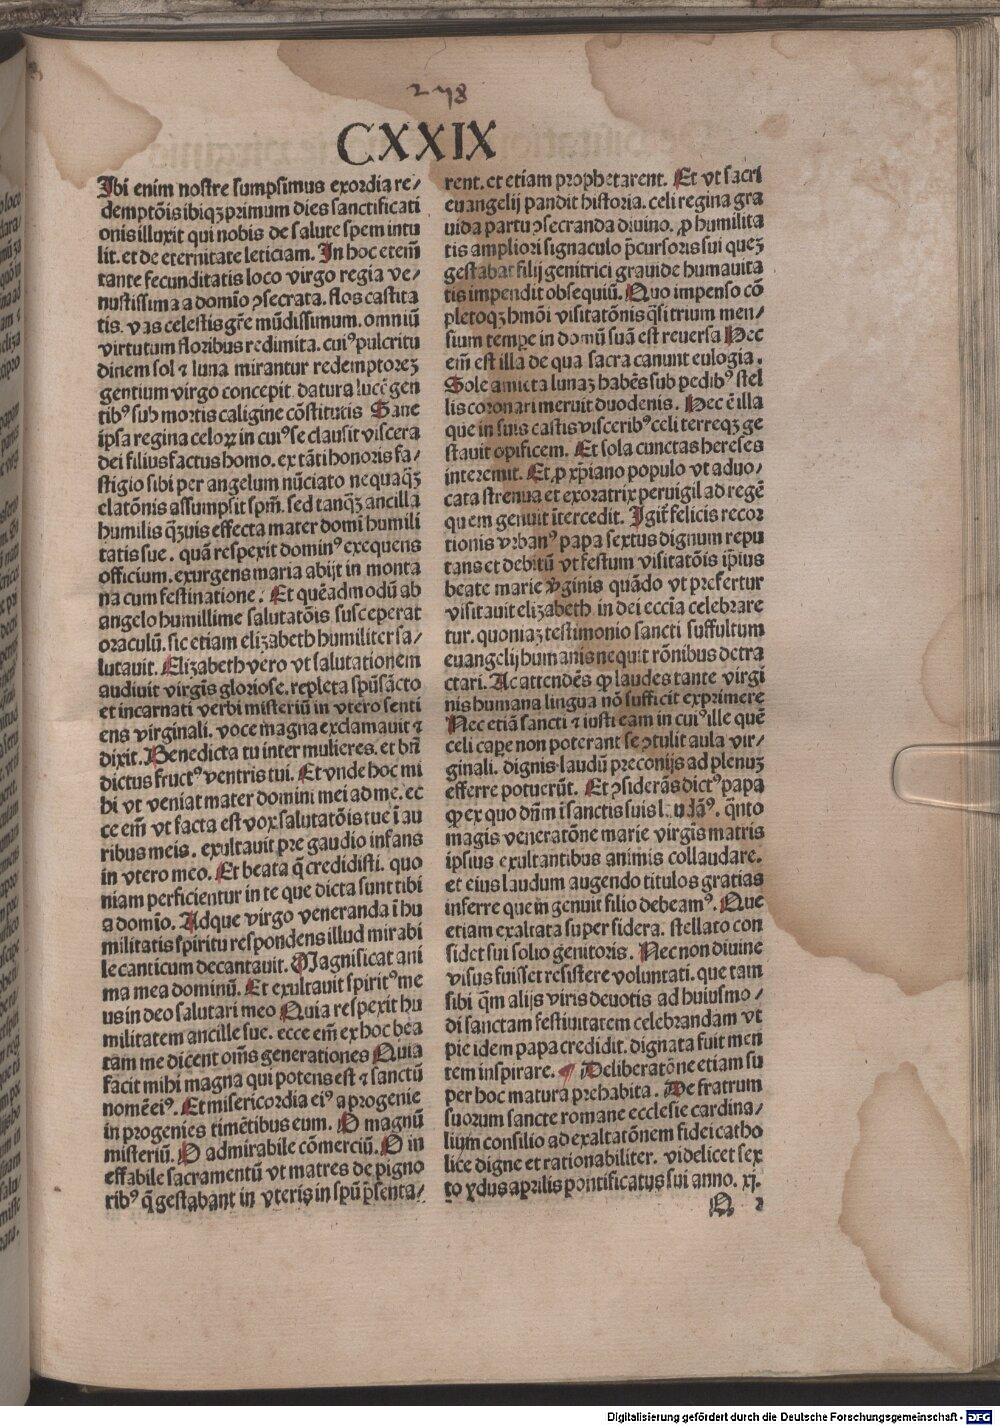 278
CXXIX
Ibi enim nostre sumpsimus exordia re/
demptōis ibiqꝫ primum dies sanctificati
onis illuxit qui nobis de salute spem intu
lit. et de eternitate leticiam. In hoc etem̄
tante fecunditatis loco virgo regia ve/
nustissima a domīo ꝯsecrata. flos castita
tis. vas celestis gr̄e mūdissimum. omniū
virtutum floribus redimita. cuiꝰ pulcritu
dinem sol ⁊ luna mirantur redemptoreꝫ
gentium virgo concepit datura lucē gen
tibꝰ sub mortis caligine cōstitutis Sane
ipsa regina celoꝝ in cuiꝰ se clausit viscera
dei filius factus homo. ex tāti honoris fa/
stigio sibi per angelum nūciato nequaq̄ꝫ
elatōnis assumpsit spm̄. sed tanq̄ꝫ ancilla
humilis q̄ꝫuis effecta mater domī humili
tatis sue. quā respexit dominꝰ exequens
officium. exurgens maria abijt in monta
na cum festinatione. Et quēadmodū ab
angelo humillime salutatōis susceperat
oraculū. sic etiam elizabeth humiliter sa/
lutauit. Elizabeth vero vt salutationem
audiuit virgīs gloriose. repleta spū sācto
et incarnati verbi misteriū in vtero senti
ens virginali. voce magna exclamauit ⁊
dixit. Benedicta tu inter mulieres. et bn̄
dictus fructꝰ ventris tui. Et vnde hoc mi
hi vt veniat mater domini mei ad me. ec
ce em̄ vt facta est vox salutatōis tue ī au
ribus meis. exultauit pre gaudio infans
in vtero meo. Et beata q̄ credidisti. quo
niam perficientur in te que dicta sunt tibi
a domīo. Adque virgo veneranda ī hu
militatis spiritu respondens illud mirabi
le canticum decantauit. Magnificat ani
ma mea dominū. Et exultauit spiritꝰ me
us in deo salutari meo Quia respexit hu
militatem ancille sue. ecce em̄ ex hoc bea
tam me dicent om̄s generationes Quia
facit mihi magna qui potens est ⁊ sanctū
nomē eiꝰ. Et misericordia eiꝰ a progenie
in progenies timētibus eum. O magnū
misteriū. O admirabile cōmerciū. O in
effabile sacramentū vt matres de pigno
ribꝰ q̄ gestabant in vteris in spū p̄senta/
rent. et etiam prophetarent. Et vt sacri
euangelij pandit historia. celi regina gra
uida partu ꝯsecranda diuino. ꝓ humilita
tis ampliori signaculo p̄cursoris sui queꝫ
gestabat filij genitrici grauide humauita
tis impendit obsequiū. Quo impenso cō
pletoqꝫ hmōi visitatōnis q̄si trium men/
sium tempore in domū suā est reuersa Hec
em̄ est illa de qua sacra canunt eulogia.
Sole amicta lunaꝫ habēs sub pedibꝰ stel
lis coronari meruit duodenis. Hec ē illa
que in suis castis visceribꝰ celi terreqꝫ ge
stauit opificem. Et sola cunctas hereses
interemit. Et ꝓ xp̄iano populo vt aduo/
cata strenua et exoratrix peruigil ad regē
quem genuit ītercedit. Igit̄ felicis recor
tionis vrbanꝰ papa sextus dignum repu
tans et debitū vt festum visitatōis ip̄ius
beate marie v̄ginis quādo vt prefertur
visitauit elizabeth in dei ecclīa celebrare
tur. quoniaꝫ testimonio sancti suffultum
euangelij humanis nequit rōnibus detra
ctari. Ac attendēs ꝙ laudes tante virgi
nis humana lingua nō sufficit exprimere
Nec etiā sancti ⁊ iusti eam in cuiꝰ ille quē
celi capere non poterant se ꝯtulit aula vir/
ginali. dignis laudū preconijs ad plenuꝫ
efferre potuerūt. Et ꝯsiderās dictꝰ papa
ꝙ ex quo dn̄m ī sanctis suis laudāꝰ. q̄nto
magis veneratōne marie virgīs matris
ipsius exultantibus animis collaudare.
et eius laudum augendo titulos gratias
inferre que in genuit filio debeamꝰ. Que
etiam exaltata super sidera. stellato con
sidet sui solio genitoris. Nec non diuine
visus fuisset resistere voluntati. que tam
sibi q̄m alijs viris deuotis ad huiusmo/
di sanctam festiuitatem celebrandam vt
pie idem papa credidit. dignata fuit men
tem inspirare. ¶ Deliberatōne etiam su
per hoc matura prehabita. De fratrum
suorum sancte romane ecclesie cardina/
lium consilio ad exaltatōnem fidei catho
lice digne et rationabiliter. videlicet sex
to ydus aprilis pontificatus sui anno. xj.
Digitalisierung gefördert durch die Deutsche Forschungsgemeinschaft - DFG